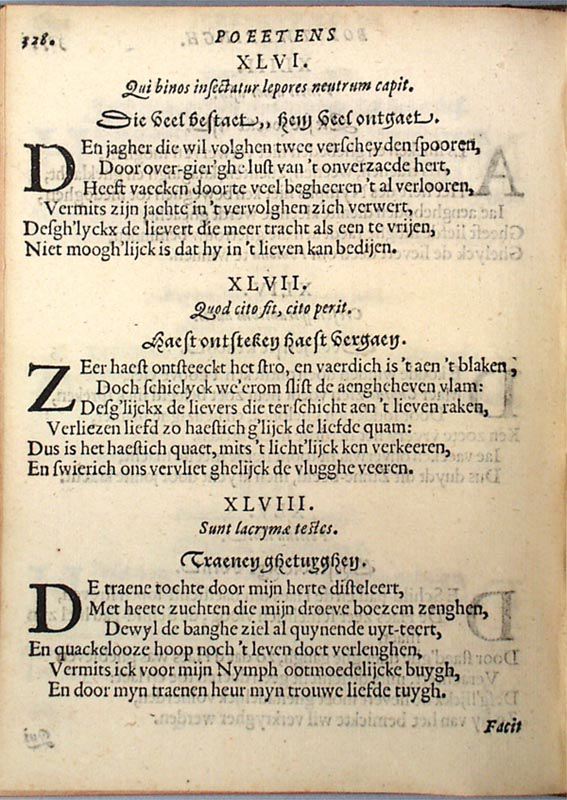 328. POEETENS
XLVI.
Qui binos insectatur lepores neutrum capit.
Die veel bestaet,, hem veel ontgaet.
DEn jagher die wil volghen twee verscheyden spooren,
Door over-gier'ghe lust van 't onverzaede hert,
Heeft vaecken door te veel begheeren 't al verlooren,
Vermits zijn jachte in 't vervolghen zich verwert,
Desgh'lyckx de lievert die meer tracht als een te vrijen,
Niet moogh'lijck is dat hy in 't lieven kan bedijen.
XLVII.
Quod cito fit, cito perit.
Haest ontsteken haest vergaen.
ZEer haest ontsteeckt het stro, en vaerdich is 't aen 't blaken,
Doch schielyck we'erom slist de aengheheven vlam:
Desg'lijckx de lievers die ter schicht aen 't lieven raken,
Verliezen liefd zo haestich g'lijck de liefde quam:
Dus is het haestich quaet, mits 't licht'lijck ken verkeeren,
En swierich ons vervliet ghelijck de vlugghe veeren.
XLVIII.
Sunt lacrymæ testes.
Traenen ghetuyghen.
DE traene tochte door mijn herte disteleert,
Met heete zuchten die mijn droeve boezem zenghen,
Dewyl de banghe ziel al quynende uyt-teert,
En quackelooze hoop noch 't leven doet verlenghen,
Vermits ick voor mijn Nymph ootmoedelijcke buygh,
En door myn traenen heur myn trouwe liefde tuygh.
Facit